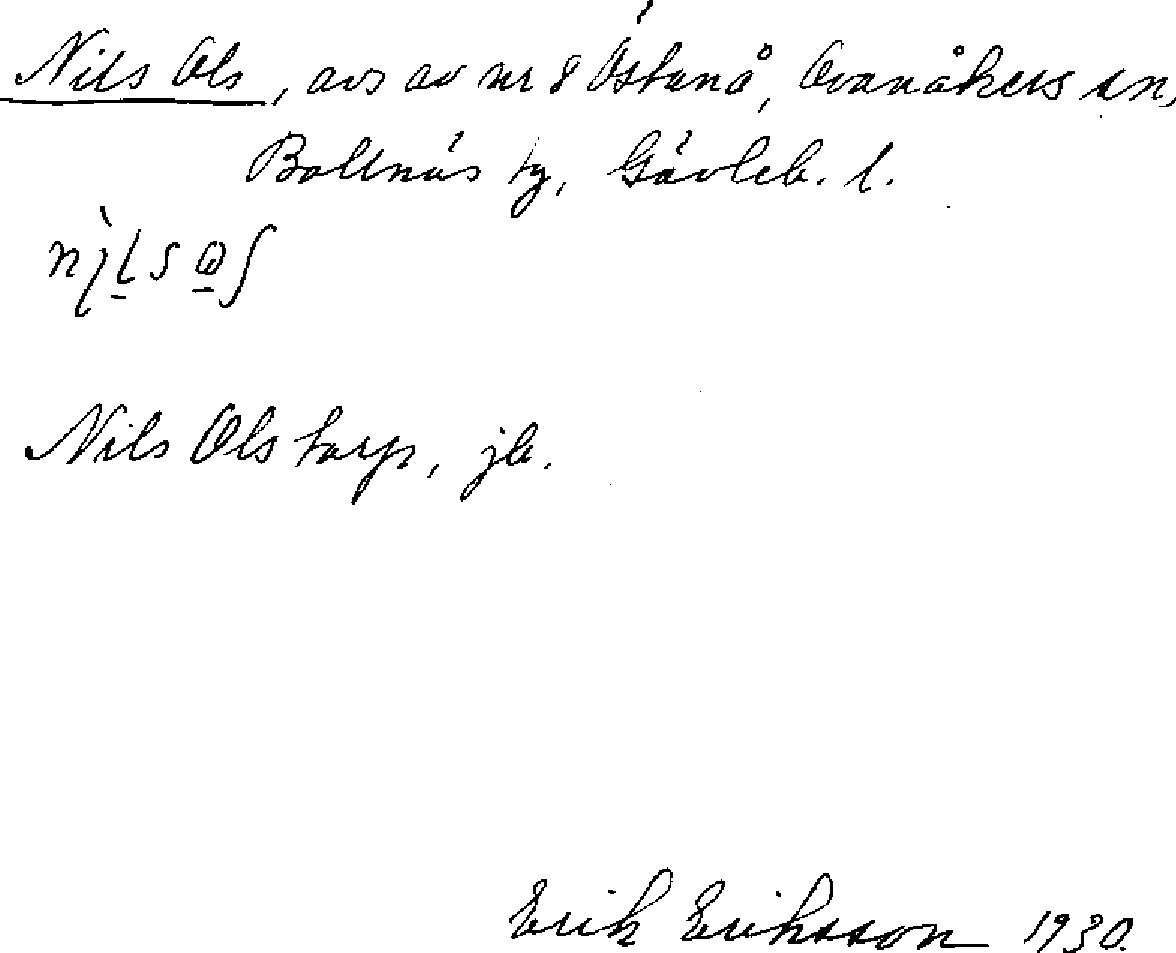 Nils Ols, avs av nr 8 Östanå, Ovanåkers sn,
Bollnäs tg, Gävleb. l.
Nils Olstorp, jb.
Erik Eriksson 1930.